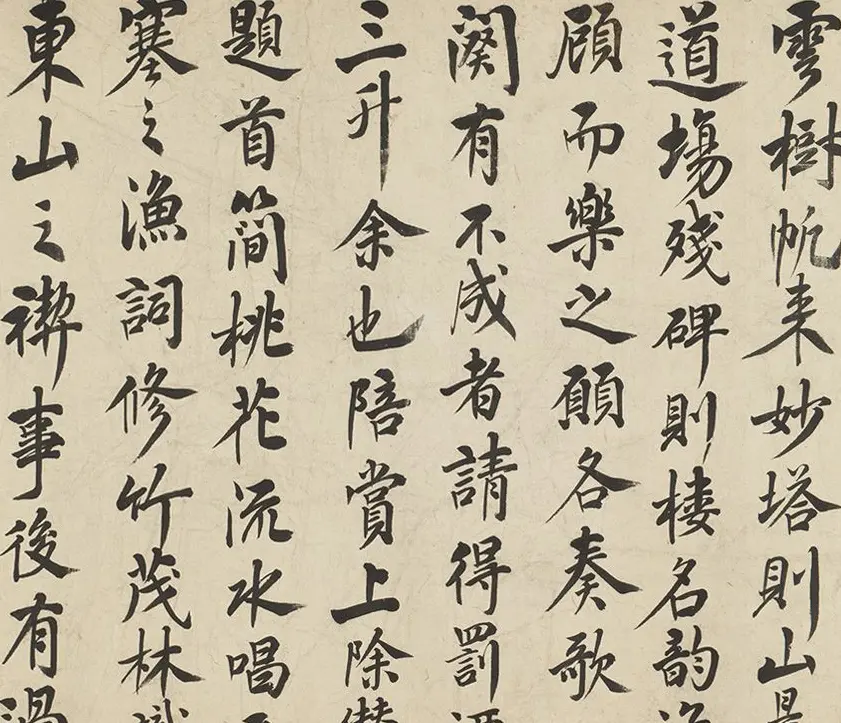 雲樹帆来妙塔則山
道場殘碑則棲名韵
顧而樂之願各奏歌
闋有不成者請得罰
三升余也陪賞上除
題首簡桃花流水唱
塞之漁詞修竹茂林
東山之禊事後有